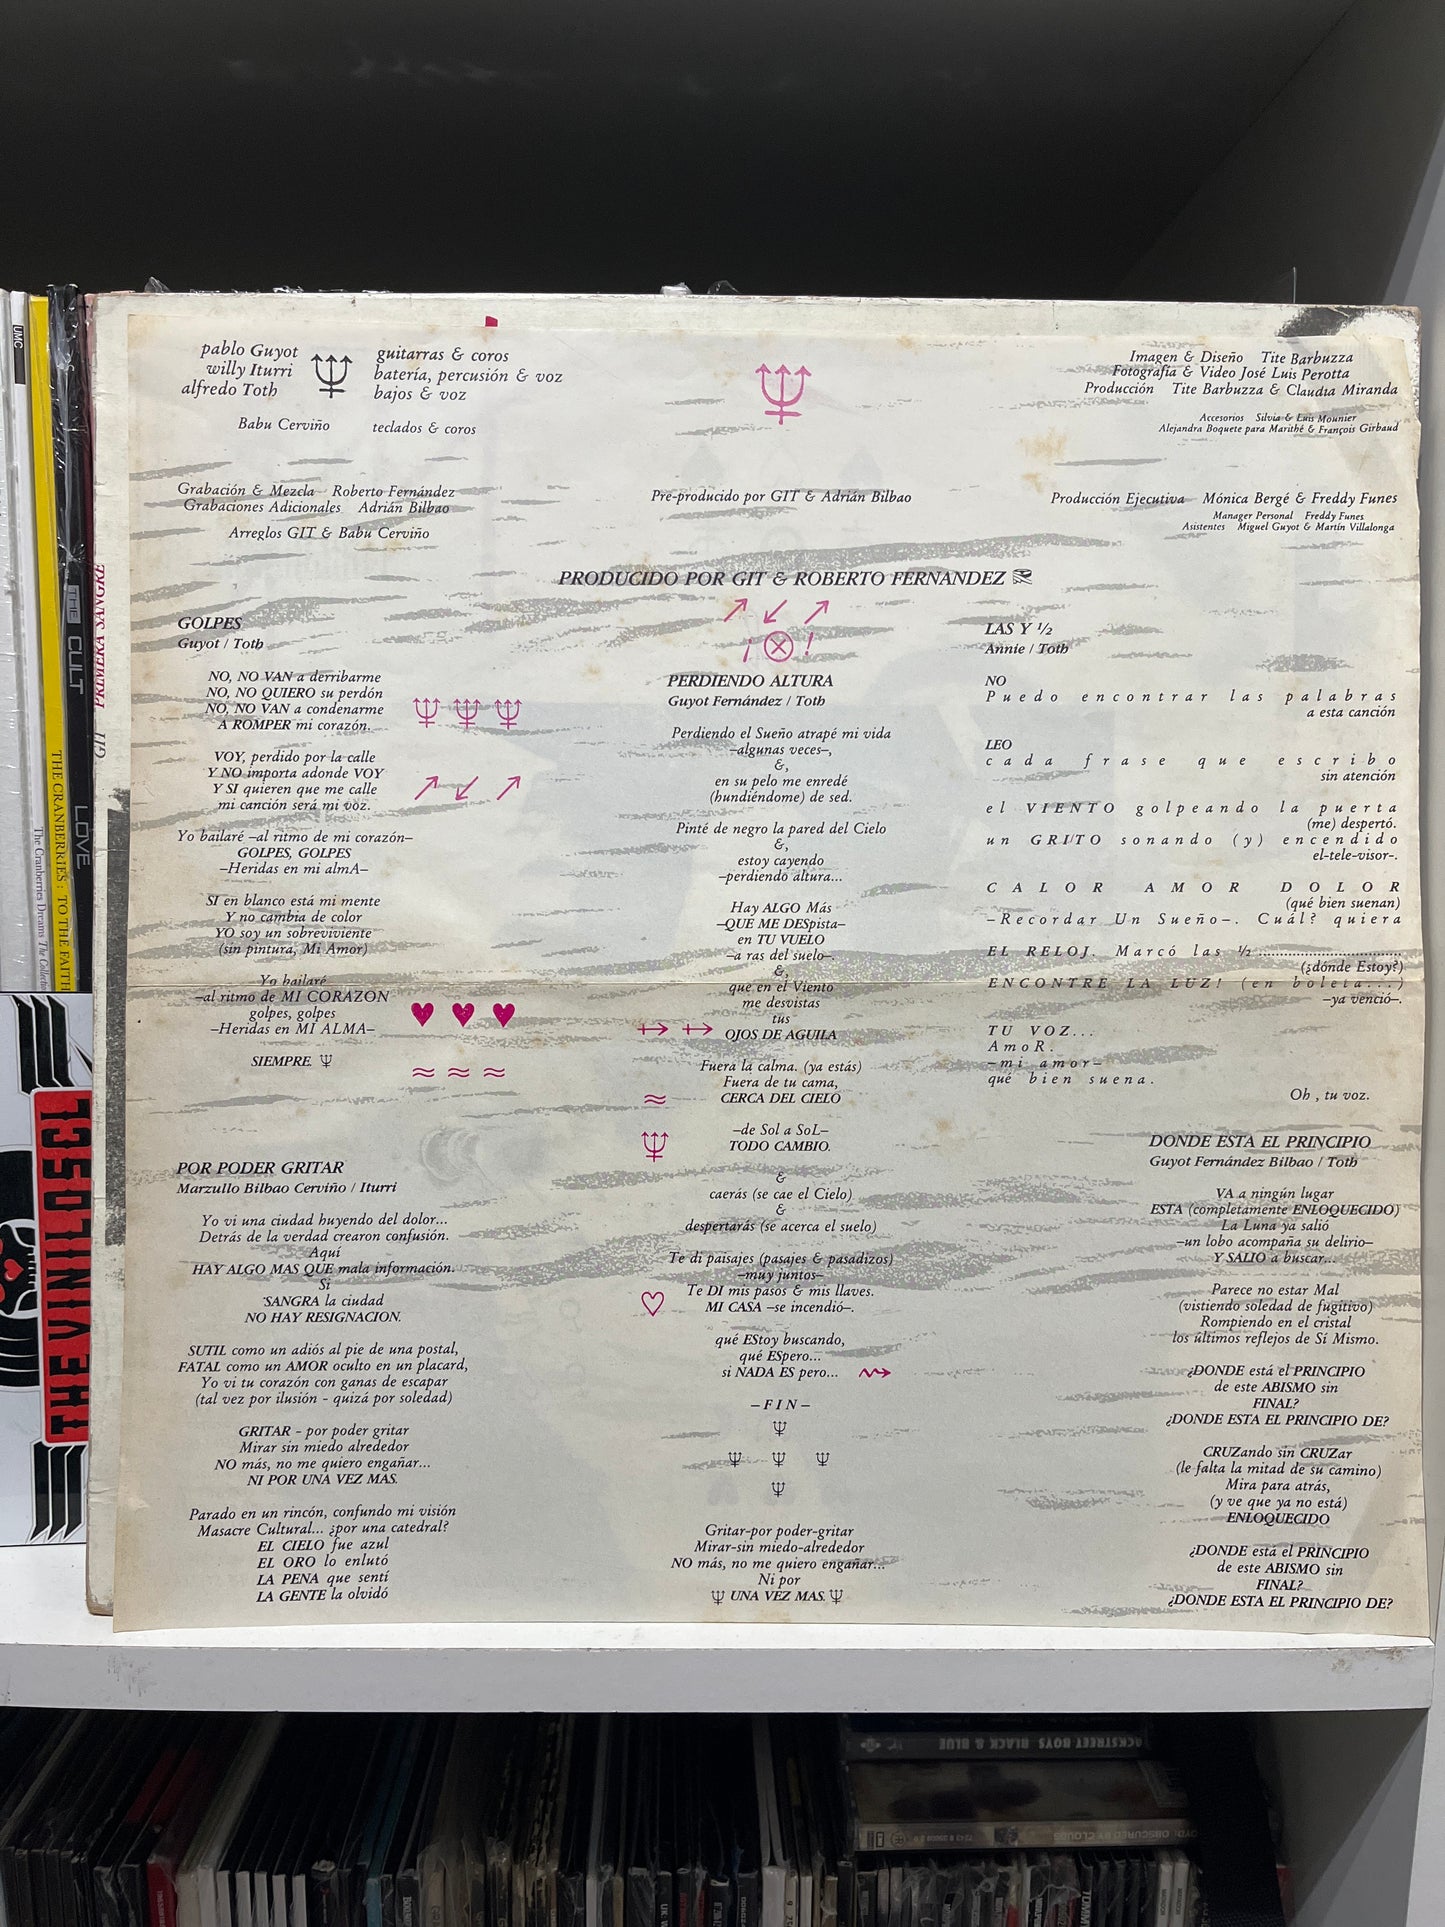 pablo Guyot guitarras & coros
willy Iturri batería, percusión & voz
alfredo Toth bajos & voz
Babu Cerviño teclados & coros
Grabación & Mezcla Roberto Fernández
Grabaciones Adicionales Adrián Bilbao
Arreglos GIT & Babu Cerviño
Pre-producido por GIT & Adrián Bilbao
Imagen & Diseño Tite Barbuzza
Fotografía & Video José Luis Perotta
Producción Tite Barbuzza & Claudia Miranda
Accesorios Silvia & Luis Mounier
Alejandra Boquete para Marithé & François Girbaud
Producción Ejecutiva Mónica Bergé & Freddy Funes
Manager Personal Freddy Funes
Asistentes Miguel Guyot & Martín Villalonga
PRODUCIDO POR GIT & ROBERTO FERNANDEZ
GOLPES
Guyot / Toth
NO, NO VAN a derribarme
NO, NO QUIERO su perdón
NO, NO VAN a condenarme
A ROMPER mi corazón.
VOY, perdido por la calle
Y NO importa adonde VOY
Y SI quieren que me calle
mi canción será mi voz.
Yo bailaré –al ritmo de mi corazón–
GOLPES, GOLPES
–Heridas en mi almA–
SI en blanco está mi mente
Y no cambia de color
YO soy un sobreviviente
(sin pintura, Mi Amor)
Yo bailaré
–al ritmo de MI CORAZON
golpes, golpes
–Heridas en MI ALMA–
SIEMPRE.
POR PODER GRITAR
Marzullo Bilbao Cerviño / Iturri
Yo vi una ciudad huyendo del dolor...
Detrás de la verdad crearon confusión.
Aquí
HAY ALGO MAS QUE mala información.
Si
SANGRA la ciudad
NO HAY RESIGNACION.
SUTIL como un adiós al pie de una postal,
FATAL como un AMOR oculto en un placard,
Yo vi tu corazón con ganas de escapar
(tal vez por ilusión - quizá por soledad)
GRITAR - por poder gritar
Mirar sin miedo alrededor
NO más, no me quiero engañar...
NI POR UNA VEZ MAS.
Parado en un rincón, confundo mi visión
Masacre Cultural... ¿por una catedral?
EL CIELO fue azul
EL ORO lo enlutó
LA PENA que sentí
LA GENTE la olvidó
¡ !
PERDIENDO ALTURA
Guyot Fernández / Toth
Perdiendo el Sueño atrapé mi vida
–algunas veces–,
&,
en su pelo me enredé
(hundiéndome) de sed.
Pinté de negro la pared del Cielo
&,
estoy cayendo
–perdiendo altura...
Hay ALGO Más
–QUE ME DESpista–
en TU VUELO
–a ras del suelo–.
&,
que en el Viento
me desvistas
tus
OJOS DE AGUILA
Fuera la calma. (ya estás)
Fuera de tu cama,
CERCA DEL CIELO
–de Sol a SoL–
TODO CAMBIO.
&
caerás (se cae el Cielo)
&
despertarás (se acerca el suelo)
Te di paisajes (pasajes & pasadizos)
–muy juntos–
Te DI mis pasos & mis llaves.
MI CASA –se incendió–.
qué EStoy buscando,
qué ESpero...
si NADA ES pero...
–FIN–
Gritar-por poder-gritar
Mirar-sin miedo-alrededor
NO más, no me quiero engañar...
Ni por
UNA VEZ MAS.
LAS Y ½
Annie / Toth
NO
Puedo encontrar las palabras
a esta canción
LEO
cada frase que escribo
sin atención
el VIENTO golpeando la puerta
(me) despertó.
un GRITO sonando (y) encendido
el-tele-visor-.
CALOR AMOR DOLOR
(qué bien suenan)
–Recordar Un Sueño–. Cuál? quiera
EL RELOJ. Marcó las ½ ..............................
(¿dónde Estoy?)
ENCONTRE LA LUZ! (en boleta...)
–ya venció–.
TU VOZ...
AmoR.
–mi amor–
qué bien suena.
Oh , tu voz.
DONDE ESTA EL PRINCIPIO
Guyot Fernández Bilbao / Toth
VA a ningún lugar
ESTA (completamente ENLOQUECIDO)
La Luna ya salió
–un lobo acompaña su delirio–
Y SALIO a buscar...
Parece no estar Mal
(vistiendo soledad de fugitivo)
Rompiendo en el cristal
los últimos reflejos de Sí Mismo.
¿DONDE está el PRINCIPIO
de este ABISMO sin
FINAL?
¿DONDE ESTA EL PRINCIPIO DE?
CRUZando sin CRUZar
(le falta la mitad de su camino)
Mira para atrás,
(y ve que ya no está)
ENLOQUECIDO
¿DONDE está el PRINCIPIO
de este ABISMO sin
FINAL?
¿DONDE ESTA EL PRINCIPIO DE?
GIT PRIMERA SANGRE
THE CULT LOVE
THE CRANBERRIES : TO THE FAITH
The Cranberries Dreams The Collection
UMC
THE VINILOSCL
BACKSTREET BOYS BLACK & BLUE
OBSCURED BY CLOUDS